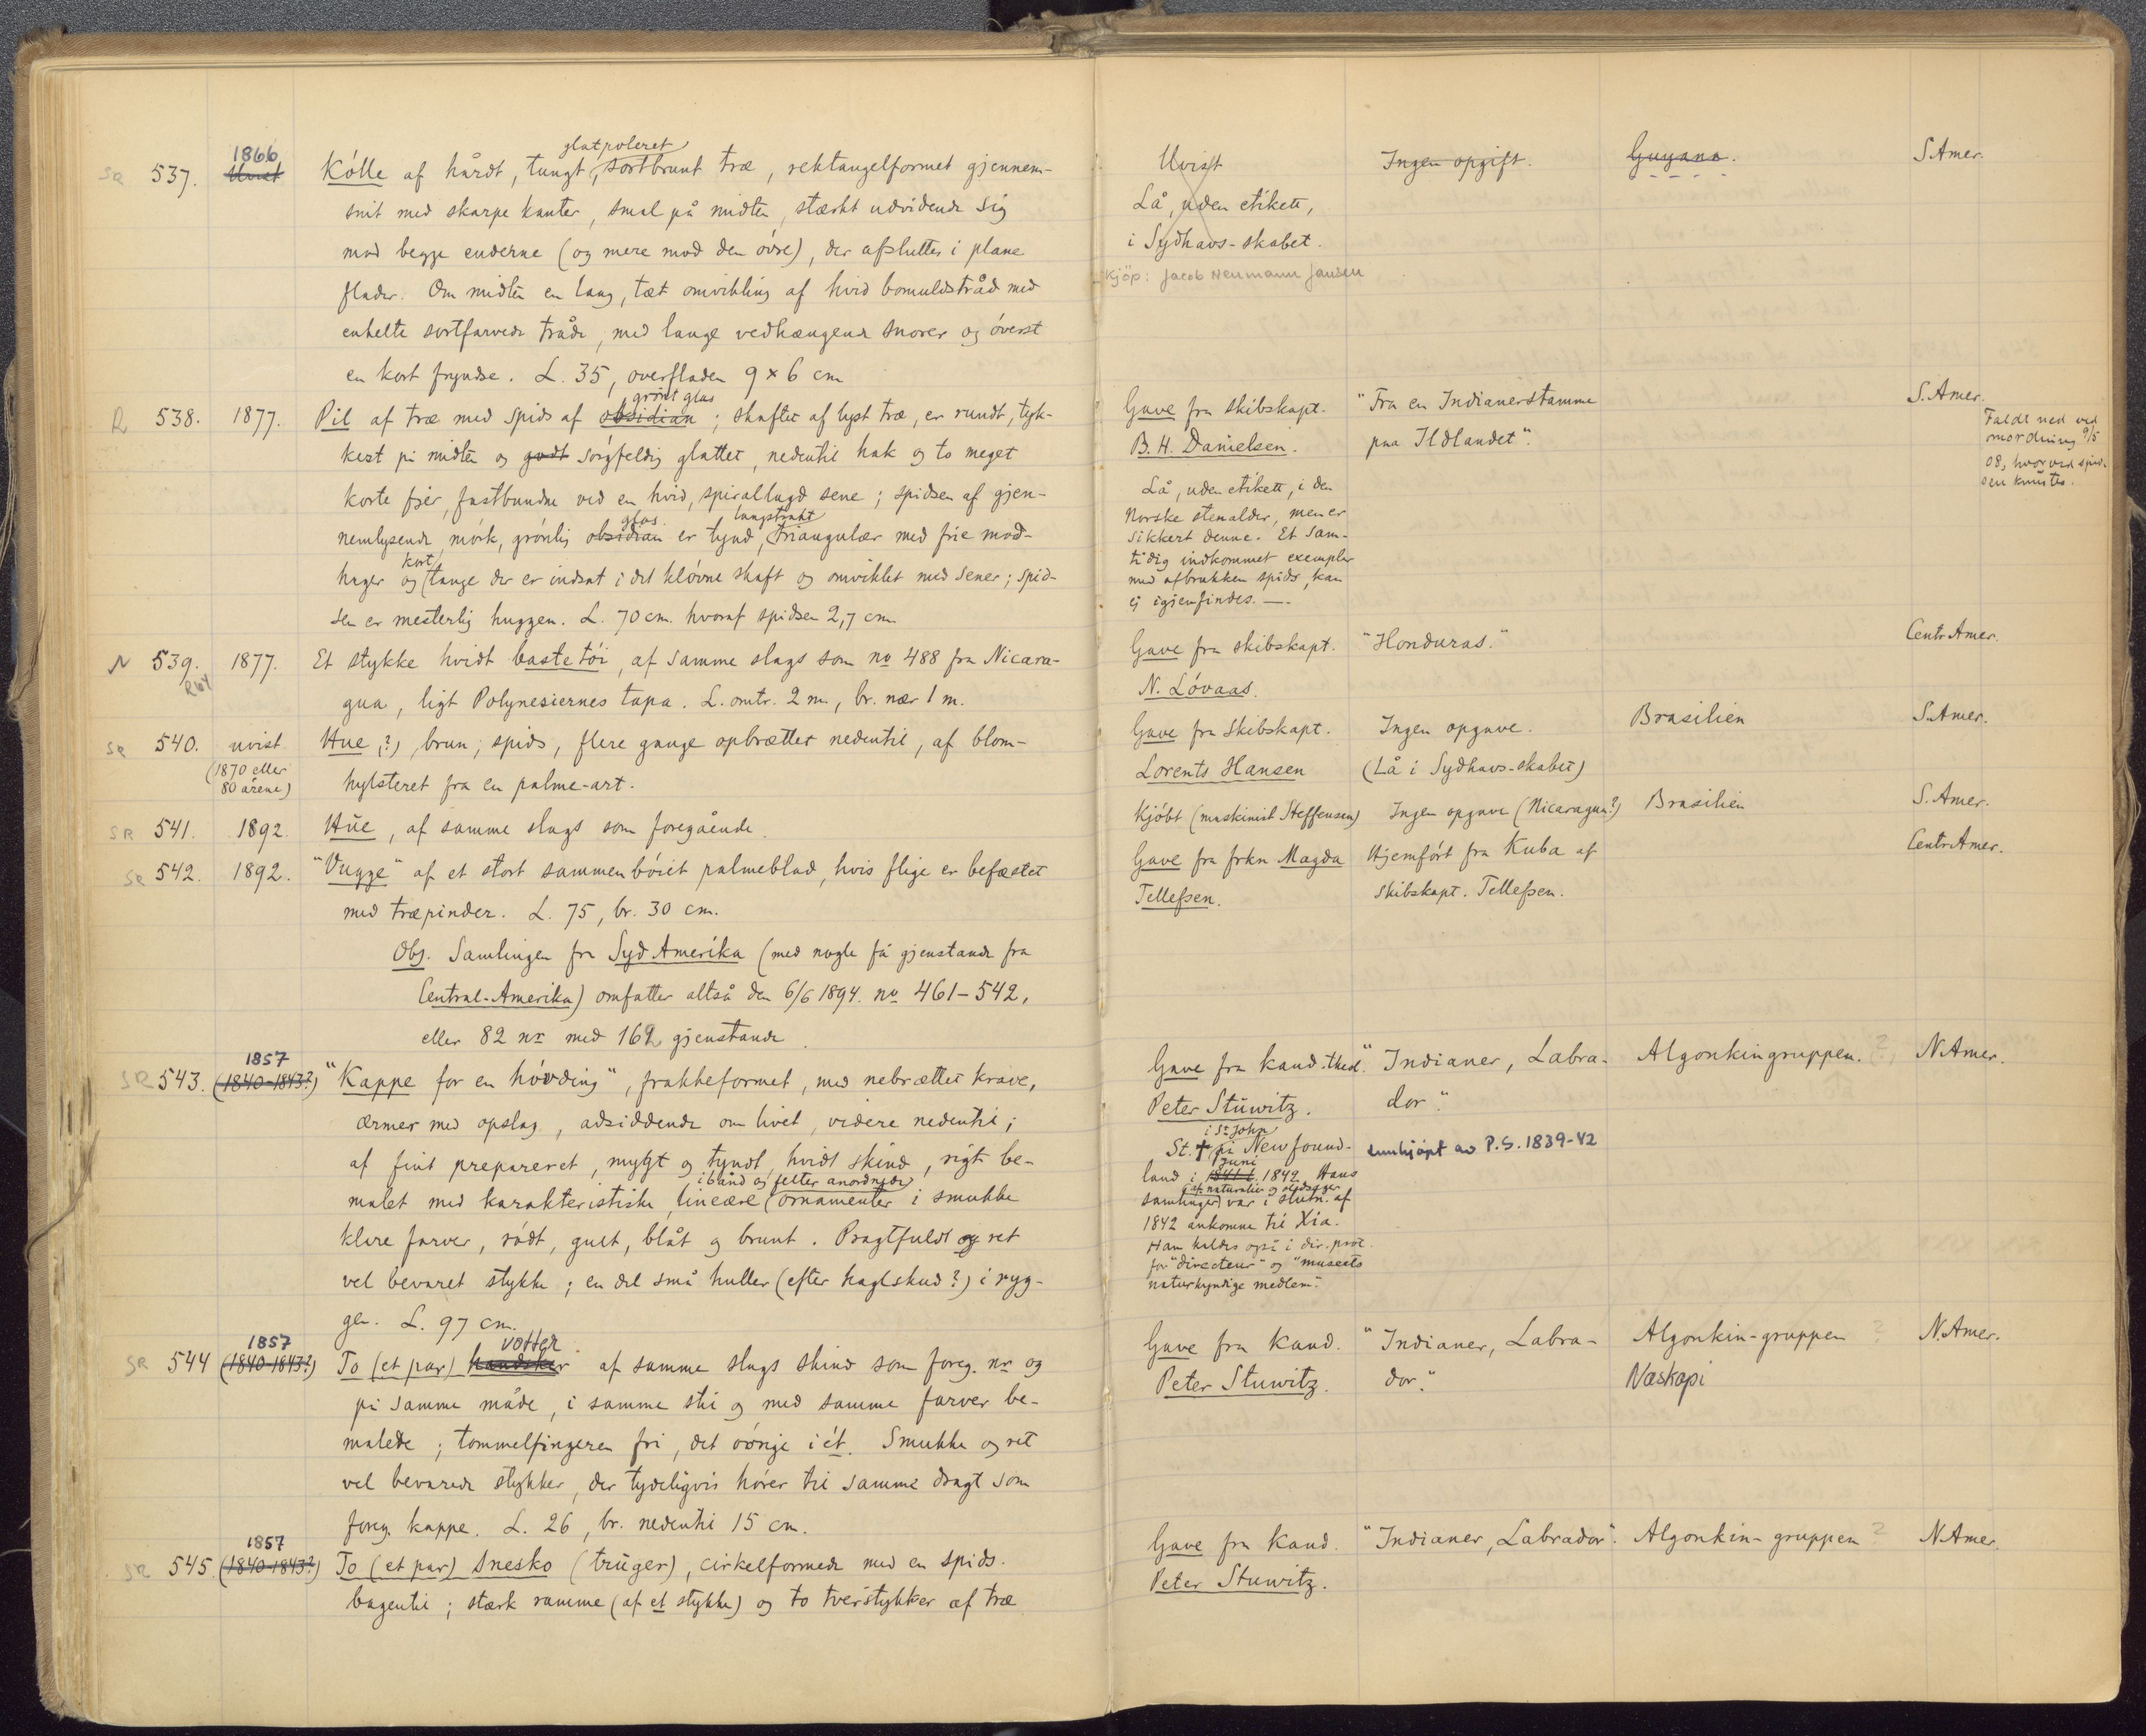 SR 537. 1866 Uvist Kólle af hårdt, tungt, glatpoleret sortbrunt træ, rektangelformet gjennem-
snit med skarpe kanter, smal på midten, stærkt udvidende sig
mod begge enderne (og mere mod den óvre), der afsluttes i plane
flader. Om midten en lang, tæt omvikling af hvid bomuldstråd med
enkelte sortfarvede tråde, med lange vedhængende snorer og óverst
en kort fryndse. L. 35, overfladen 9 x 6 cm
R 538. 1877. Pil af træ med spids af obsidian grönt glas; skaftet af lyst træ, er rundt, tyk-
kest på midten og godt sórgfeldig glattet, nedentil hak og to meget
korte fjér, fastbundne ved en hvid, spirallagd sene; spidsen af gjen-
nemlysende mórk, grónlig obsidian glas. er tynd, langstrakt triangulær med frie mod-
hager og kort tange der er indsat i det klóvne skaft og omviklet med sener; spid-
sen er mesterlig huggen. L. 70 cm. hvoraf spidsen 2,7 cm
N 539. 1877. Et stykke hvidt bastetói, af samme slags som no 488 fra Nicara-
gua, ligt Polynesiernes tapa. L. omtr. 2 m, br. nær 1 m.
SR 540. uvist (1870 eller 80 årene) Hue (?), brun, spids, flere gange opbrættet nedentil, af blom-
hylsteret fra en palme-art.
SR 541. 1892. Hue, af samme slags som foregående.
SR 542. 1892. "Vugge" af et stort sammenbóiet palmeblad, hvis flige er befæstet
med træpinder. L. 75, br. 30 cm.
Obs. Samlingen fra Syd Amerika (med nogle få gjenstande fra
Central-Amerika) omfatter altså den 6/6 1894. no 461-542,
eller 82 nr med 162 gjenstande.
SR 543. 1857 (1840-1843?) "Kappe for en hóvding", frakkeformet, med nebrættet krave,
ærmer med opslag, adsiddende om livet, videre nedentil;
af fint prepareret, mygt og tyndt, hvidt skind, rigt be-
malet med karakteristiske, lineære i bånd og felter anordnede ornamenter i smukke
klare farver, ródt, gult, blåt og brunt. Pragtfuldt og ret
vel bevaret stykke; en del små huller (efter haglskud?) i ryg-
gen. L. 97 cm.
SR 544 1857 (1840-1843?) To (et par) handsker votter af samme slags skind som foreg. nr og
på samme måde, i samme stil og med samme farver be-
malede; tommelfingeren fri, det óvrige i ét. Smukke og ret
vel bevarede stykker, der tydeligvis hórer til samme dragt som
foreg. kappe. L. 26, br. nedentil 15 cm.
SR 545. 1857 (1840-1843?) To (et par) snesko (trüger), cirkelformede med en spids.
bagentil; stærk ramme (af et stykke) og to tverstykker af træ
Uvist Ingen opgift. Guyana. S Amer.
Lå, uden etikett,
i Sydhavs-skabet.
Kjöp: Jacob Neumann Jansen
Gave fra skibskapt. "Fra en Indianerstamme S. Amer.
B. H. Danielsen. paa Ildlandet".
Faldt ned ved
omordning 9/5
08, hvorved spid-
sen knustes.
Lå, uden etikett, i den
Norske stenalder, men er
sikkert denne. Et sam-
tidig indkommet exemplar
med afbrukken spids, kan
ej igjenfindes. —.
Gave fra skibskapt. "Honduras." Centr Amer.
N. Lóvaas.
Gave fra Skibskapt. Ingen opgave. Brasilien S. Amer.
Lorents Hansen (Lå i Sydhavs-skabet)
Kjóbt (maskinist Steffensen) Ingen opgave (Nicaragua?) Brasilien S. Amer.
Gave fra frkn Magda Hjemfórt fra Kuba af Centr Amer.
Tellefsen. skibskapt. Tellefsen.
Gave fra kand. theol. "Indianer, Labra- Algonkingruppen. ? N Amer.
Peter Stüwitz. dor."
St. † i St John på Newfound- innkjöpt av P.S. 1839-42
land i Juni 1841 1842. Hans
samlinger (af naturalier og oldsager) var i slutn. af
1842 ankomne til Xia.
Han kaldes også i dir. prot.
for "directeur" og "museets
naturkyndige medlem".
Gave fra kand. "Indianer, Labra- Algonkin-gruppen ? N. Amer.
Peter Stuwitz. dor." Naskapi
Gave fra kand. "Indianer, Labrador". Algonkin-gruppen ? N Amer.
Peter Stuwitz.